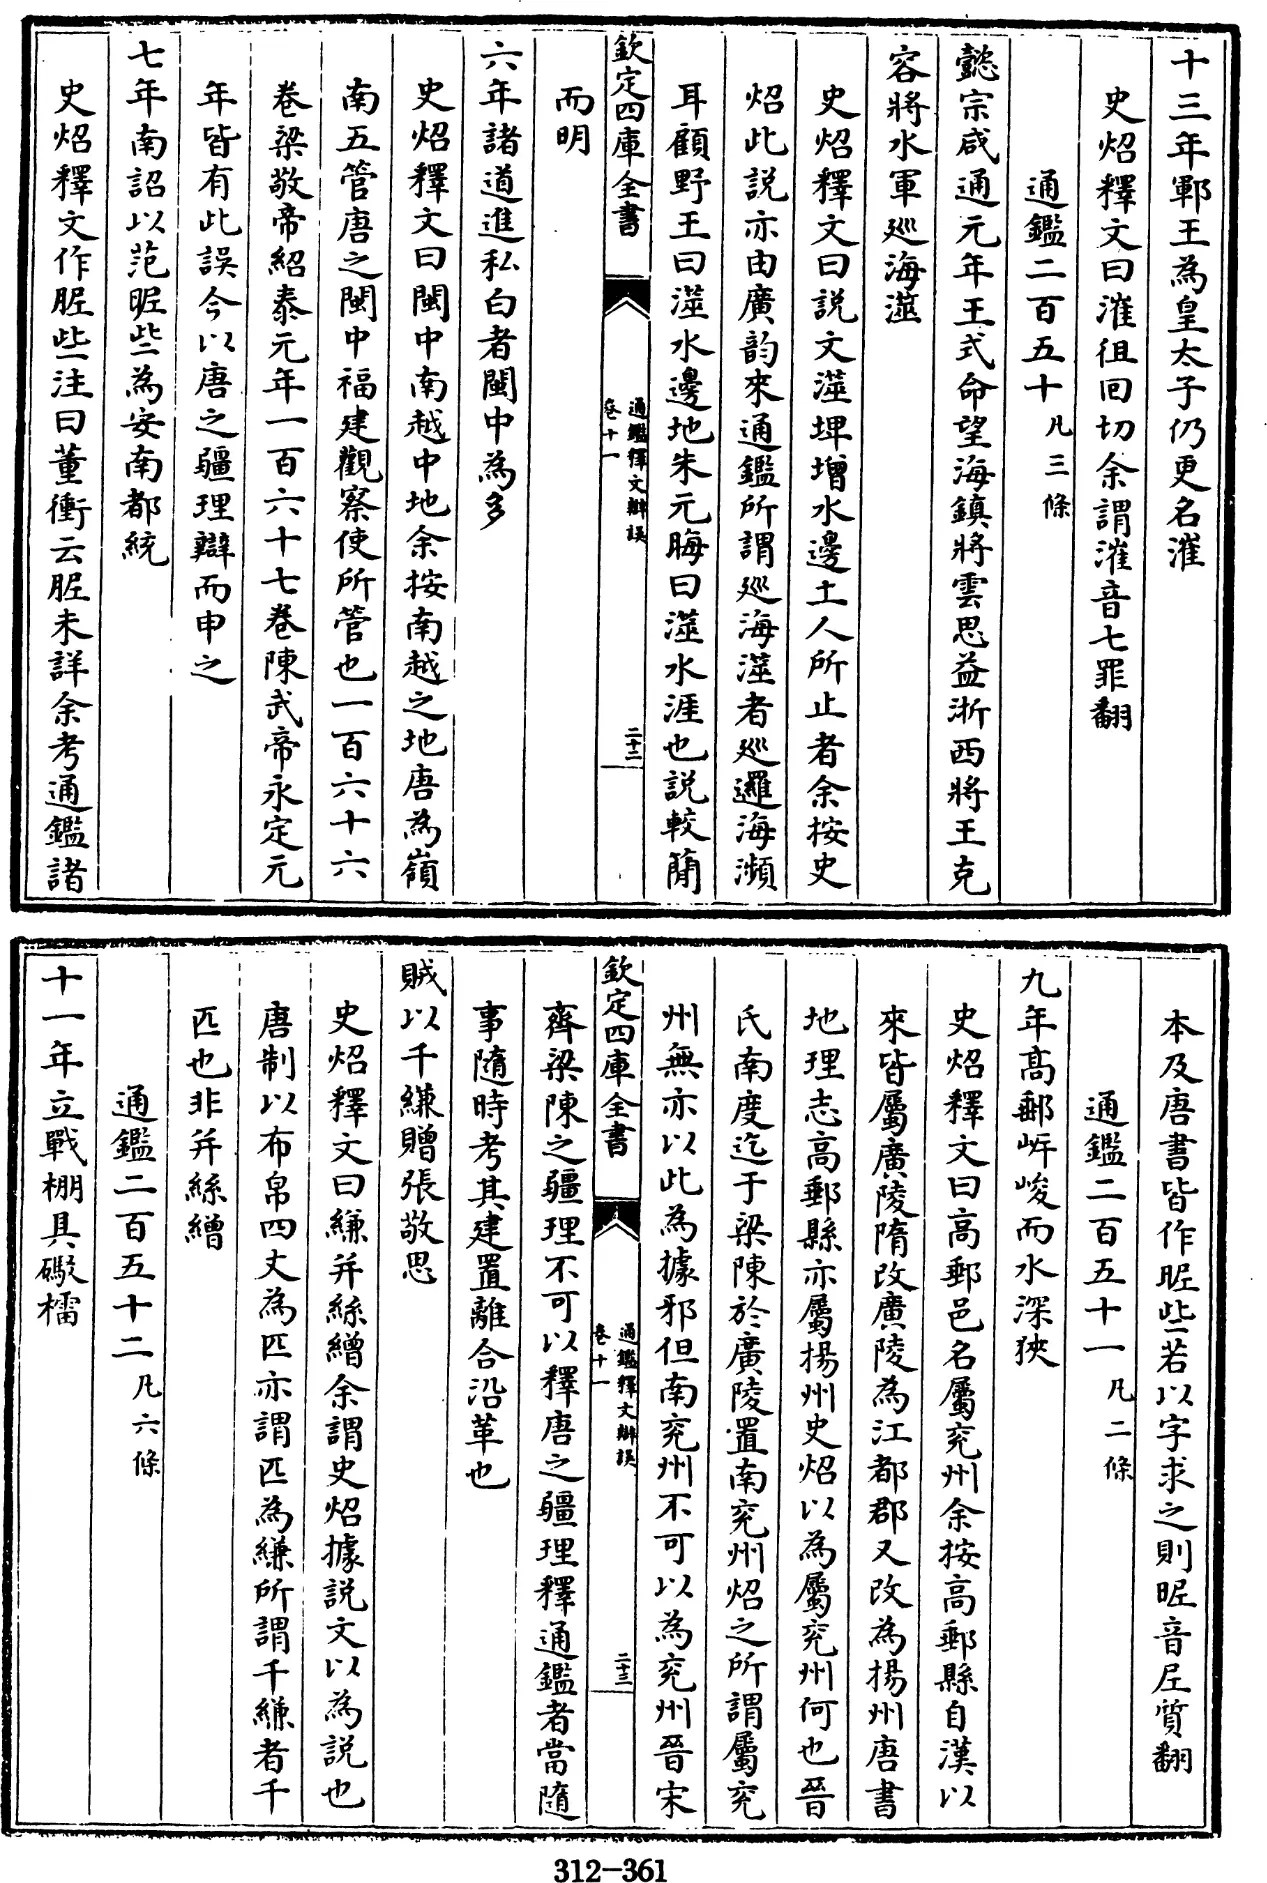 十三年鄆王為皇太子仍更名漼
史炤釋文曰漼徂回切余謂漼音七罪翻
通鑑二百五十凡三條
懿宗咸通元年王式命望海鎮將雲思益浙西將王克
容將水軍巡海澨
史炤釋文曰説文澨埤增水邊土人所止者余按史
炤此説亦由廣韵來通鑑所謂巡海澨者巡邏海瀕
耳顧野王曰澨水邊地朱元晦曰澨水涯也説較簡
而明
欽定四庫全書
通鑑釋文辯誤
卷十一
二十二
六年諸道進私白者閩中為多
史炤釋文曰閩中南越中地余按南越之地唐為嶺
南五管唐之閩中福建觀察使所管也一百六十六
卷梁敬帝紹泰元年一百六十七卷陳武帝永定元
年皆有此誤今以唐之疆理辯而申之
七年南詔以范昵些為安南都統
史炤釋文作胒些注曰董衝云胒未詳余考通鑑諸
本及唐書皆作昵些若以字求之則昵音尼質翻
通鑑二百五十一凡二條
九年髙郵岸峻而水深狹
史炤釋文曰高郵邑名屬兖州余按高郵縣自漢以
來皆屬廣陵隋改廣陵為江都郡又改為揚州唐書
地理志高郵縣亦屬揚州史炤以為屬兖州何也晉
氏南度迄于梁陳於廣陵置南兖州炤之所謂屬兖
州無亦以此為據邪但南兖州不可以為兖州晉宋
欽定四庫全書
通鑑釋文辯誤
卷十一
二十三
齊梁陳之疆理不可以釋唐之疆理釋通鑑者當隨
事隨時考其建置離合沿革也
賊以千縑贈張敬思
史炤釋文曰縑并絲繒余謂史炤據説文以為説也
唐制以布帛四丈為匹亦謂匹為縑所謂千縑者千
匹也非并絲繒
通鑑二百五十二凡六條
十一年立戰棚具礮檑
312-361